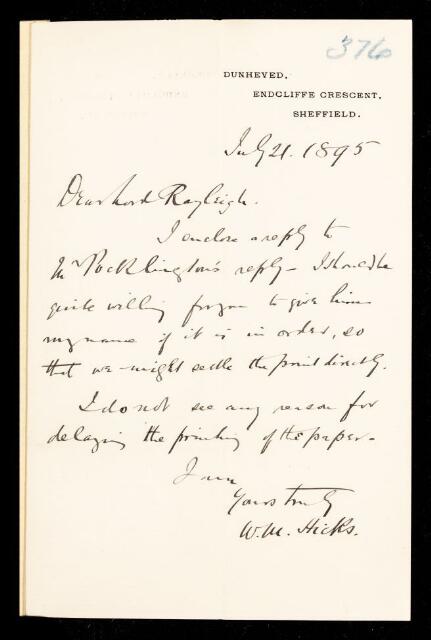 376
DUNHEVED,
ENDCLIFFE CRESCENT,
SHEFFIELD.
July 21. 1895
Dear Lord Rayleigh.
I enclose a reply to
Mr Pocklington's reply – I should be
quite willing for you to give him
my name if it is in order, so
that we might settle the point directly.
I do not see any reason for
delaying the printing of the paper –
I am
Yours truly
W. M. Hicks.